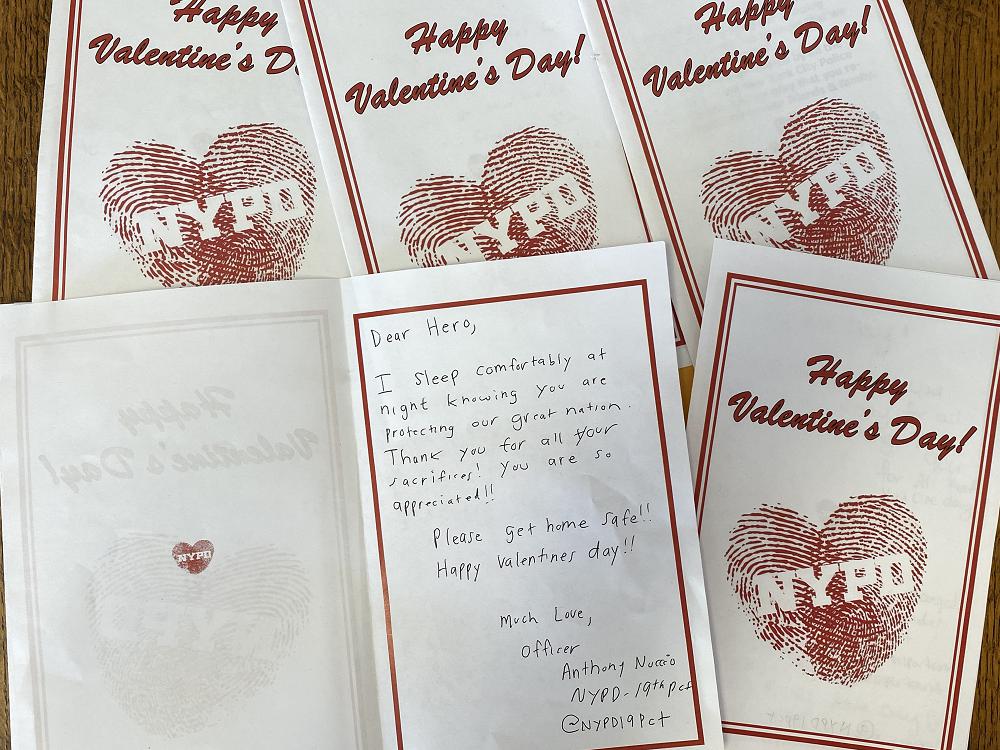 Happy
Valentine's D
NYPD
Happy
Valentine's Day!
NYPD
Happy
Valentine's Day!
NYPD
Happy
Valentine's Day!
NYPD
Dear Hero,
I sleep comfortably at
night knowing you are
protecting our great nation.
Thank you for all your
sacrifices! you are so
appreciated!!
Please get home safe!!
Happy Valentines day!!
Much Love,
Officer
Anthony Nuccio
NYPD-19th Pct
@NYPD19Pct
Happy
Valentine's Day!
NYPD
@NYPD19Pct